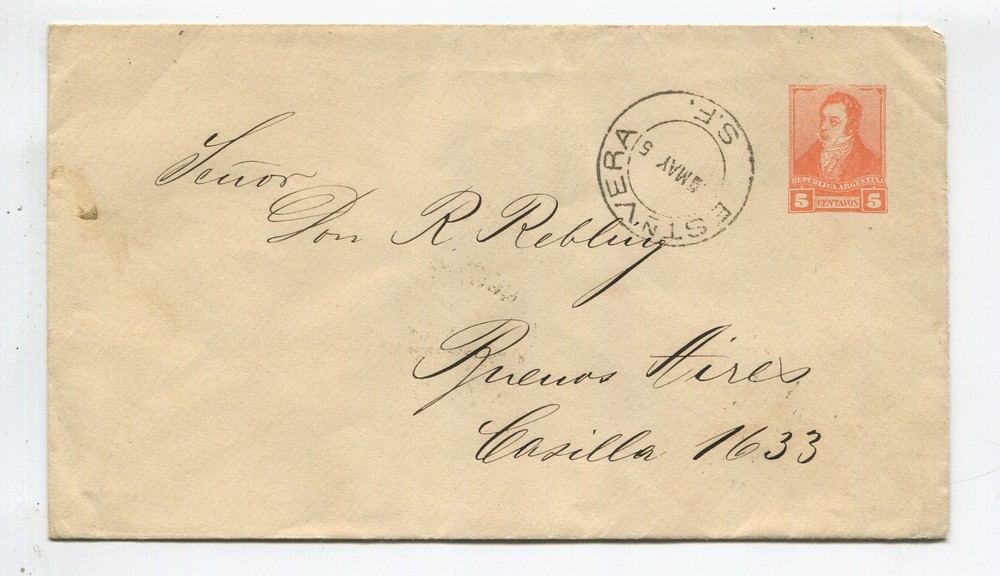 REPUBLICA ARGENTINA
5 CENTAVOS 5
ESTN VERA
S.F.
MAY 5
Señor
Don R. Rebling
Buenos Aires
Casilla 1633